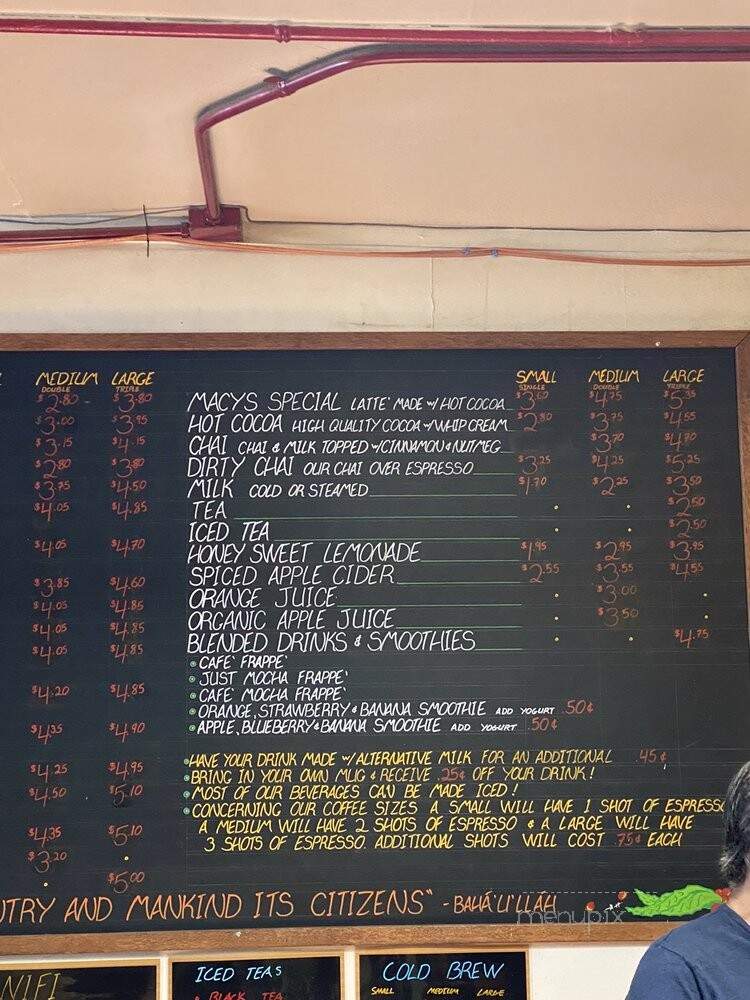 MEDIUM LARGE
DOUBLE TRIPLE
$2.80 $3.80
$3.00 $3.95
$3.15 $4.15
$2.80 $3.80
$3.75 $4.50
$4.05 $4.85
$4.05 $4.70
$3.85 $4.60
$4.05 $4.85
$4.05 $4.85
$4.05 $4.85
$4.20 $4.85
$4.35 $4.90
$4.25 $4.95
$4.50 $5.10
$4.35 $5.10
$3.20
$5.00
SMALL MEDIUM LARGE
SINGLE DOUBLE TRIPLE
MACYS SPECIAL LATTE' MADE W/ HOT COCOA $4.75 $5.35
HOT COCOA HIGH QUALITY COCOA W/WHIP CREAM $2.80 $3.75 $4.55
CHAI CHAI & MILK TOPPED W/CINNAMON & NUTMEG $3.70 $4.70
DIRTY CHAI OUR CHAI OVER ESPRESSO $3.25 $4.25 $5.25
MILK COLD OR STEAMED $1.70 $2.25 $3.50
TEA $2.50
ICED TEA $2.50
HONEY SWEET LEMONADE $1.95 $2.95 $3.95
SPICED APPLE CIDER $2.55 $3.55 $4.55
ORANGE JUICE $3.00
ORGANIC APPLE JUICE $3.50
BLENDED DRINKS & SMOOTHIES $4.75
CAFE' FRAPPE'
JUST MOCHA FRAPPE'
CAFE' MOCHA FRAPPE'
ORANGE, STRAWBERRY & BANANA SMOOTHIE ADD YOGURT .50¢
APPLE, BLUEBERRY & BANANA SMOOTHIE ADD YOGURT .50¢
HAVE YOUR DRINK MADE W/ALTERNATIVE MILK FOR AN ADDITIONAL .45¢
BRING IN YOUR OWN MUG & RECEIVE .25¢ OFF YOUR DRINK!
MOST OF OUR BEVERAGES CAN BE MADE ICED!
CONCERNING OUR COFFEE SIZES A SMALL WILL HAVE 1 SHOT OF ESPRESSO
A MEDIUM WILL HAVE 2 SHOTS OF ESPRESSO & A LARGE WILL HAVE
3 SHOTS OF ESPRESSO ADDITIONAL SHOTS WILL COST .75¢ EACH
UTRY AND MANKIND ITS CITIZENS" - BAHÁ'U'LLÁH
menupix
NIFI
ICED TEAS
BLACK TEA
COLD BREW
SMALL MEDIUM LARGE